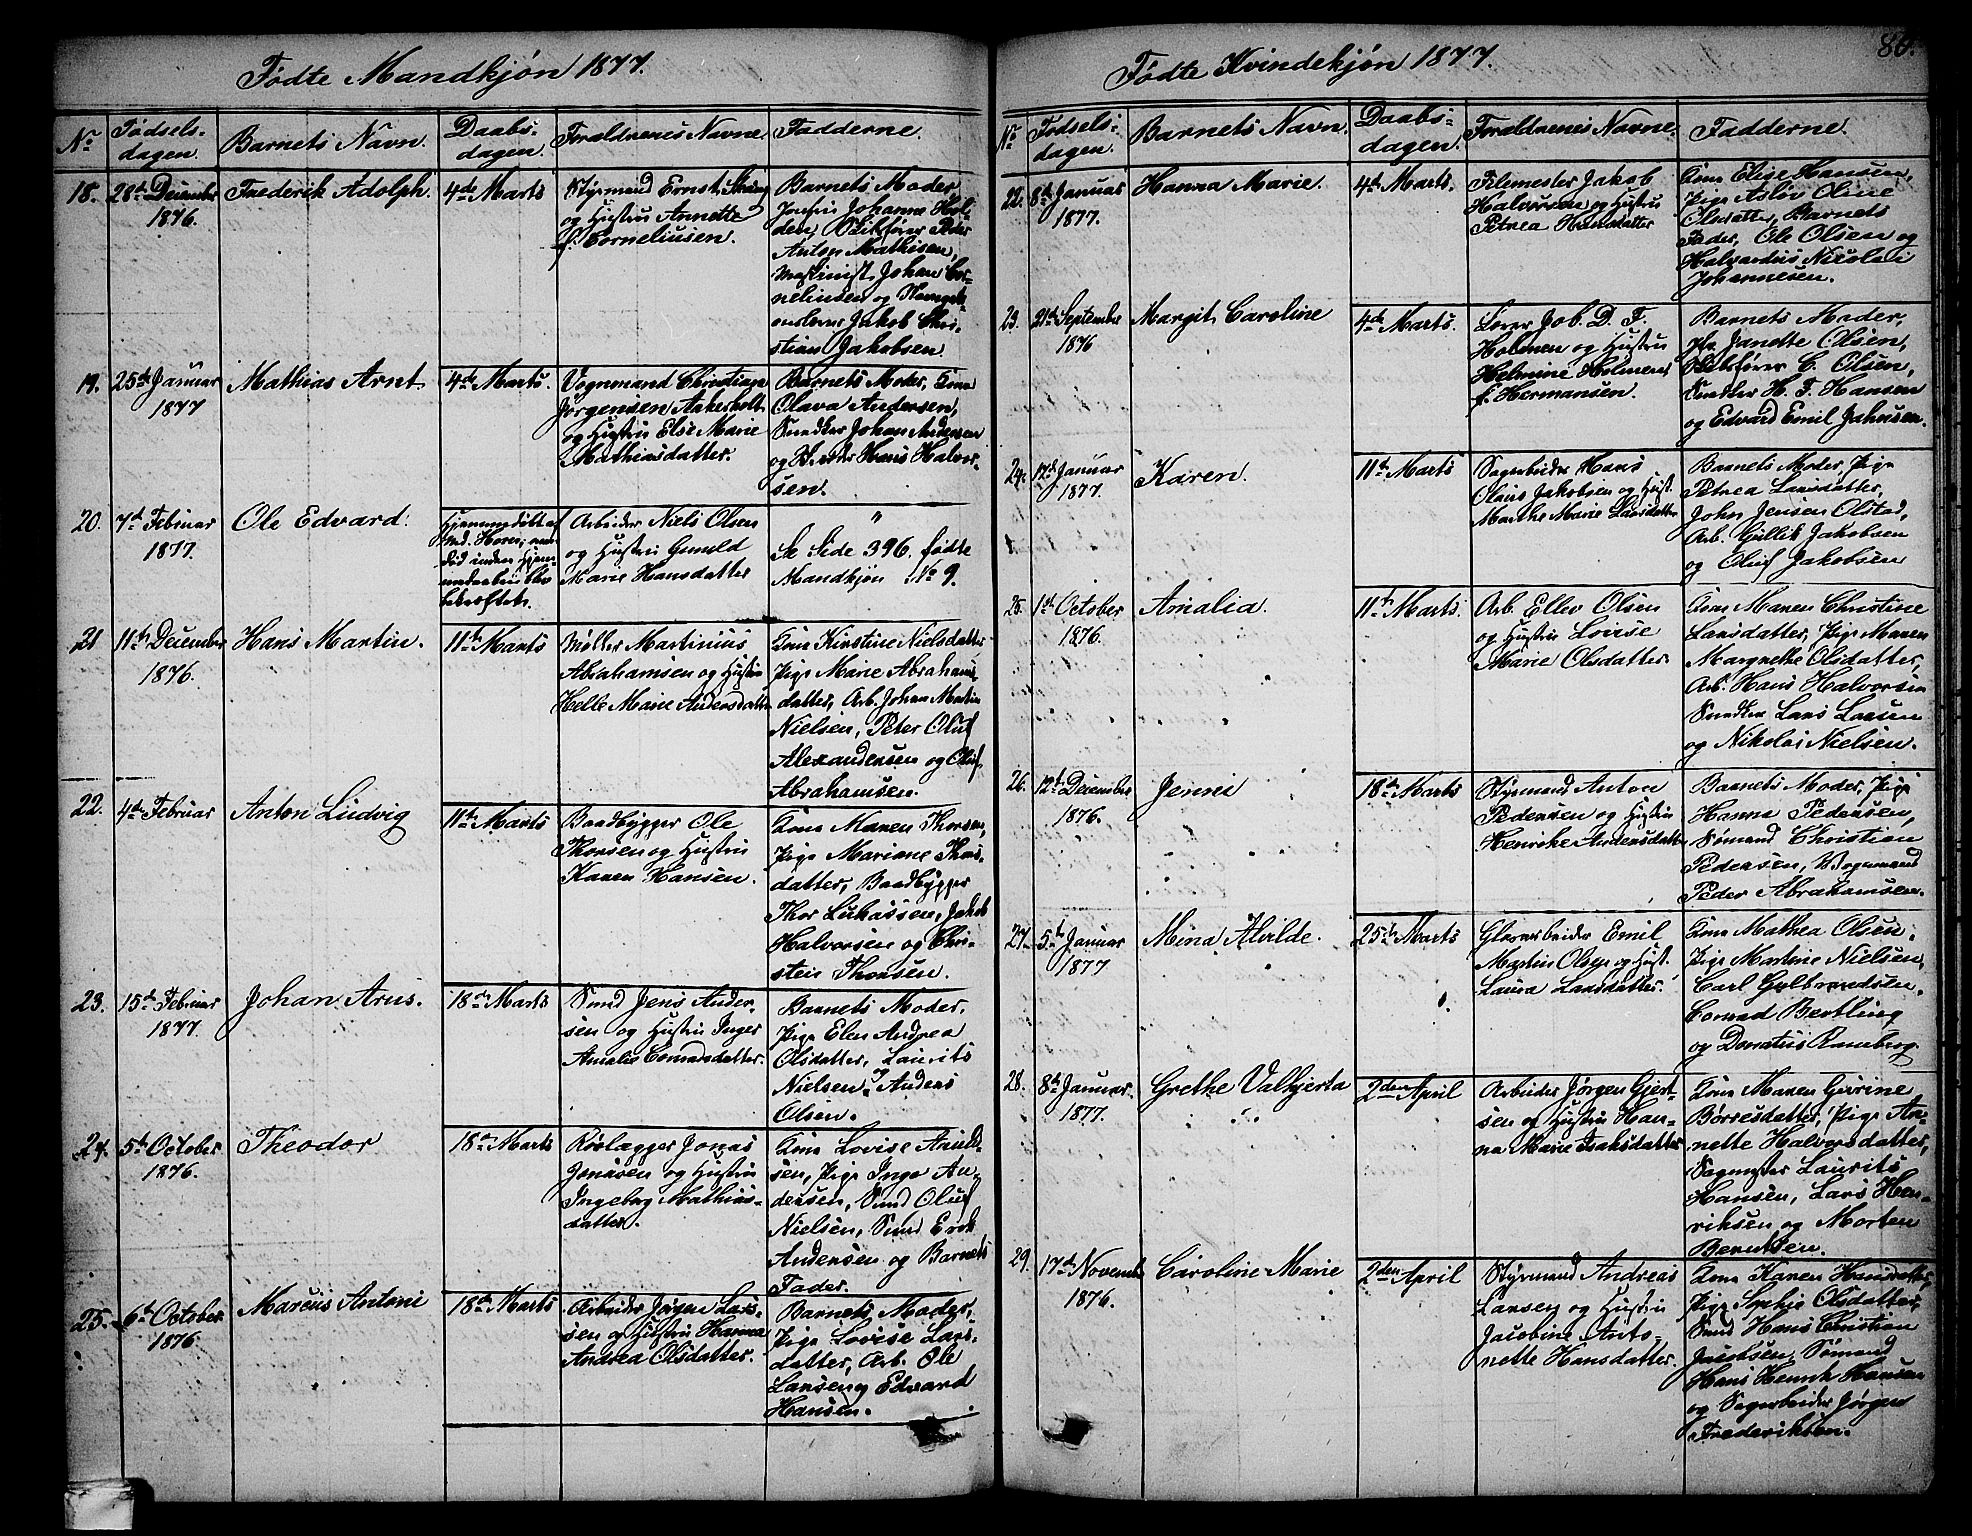 Fødte Mandkjøn 1877.
No Fødsels-dagen. Barnets Navn. Daabs-dagen. Foraldrenes Navne. Fadderne.
18. 28de December 1876. Frederik Adolph. 4de Marts
Styrmand Ernst
og Hustru Annette
f. Corneliusen.
Barnets Moder,
Jomfru Johanne Hol-
den, Peder
Anton Mathisen,
Maskinist Johan Cor-
neliusen og
Jakob Chri-
stian Jakobsen.
19. 25de Januar 1877 Mathias Arnt 4de Marts.
Vognmand Christian
Jørgensen Aakerholt
og Hustru Else Marie
Mathiasdatter.
Barnets Moder, Kone
Olava Andersen,
Snedker Johan Andersen
og Hans Halvor-
sen.
20. 7de Februar 1877. Ole Edvard.
Hjemmedøbt af
bekræftet.
Arbeider Niels Olsen
og Hustru Gunild
Marie Hansdatter
"
Se Side 396. fødte
Mandkjøn No 9.
21 11te December 1876. Hans Martin. 11te Marts
Møller Martinius
Abrahamsen og Hustru
Helle Marie Andersdatter
Kone Kirstine Nielsdatter
Pige Marie Abrahams-
datter, Arb. Johan Martin
Nielsen, Peter Oluf
Alexandersen og Oluf
Abrahamsen.
22. 4de Februar Anton Ludvig 11te Marts
Baadbygger Ole
Thorsen og Hustru
Karen Hansen.
Kone Maren Thorsen,
Pige Mariane Thors-
datter, Baadbygger
Thor Lukassen, Jakob
Halvorsen og Chri-
stein Thorsen.
23. 15de Februar 1877. Johan Arus. 18de Marts
Smed Jens Ander-
sen og Hustru Inger
Amalie
Barnets Moder,
Pige Elen Andrea
Olsdatter, Laurits
Nielsen og Anders
Olsen.
24. 5te October 1876. Theodor 18de Marts
Jonas
Jonasen og Hustru
Ingeborg Mathias-
datter.
Kone Lovise Arnold-
sen, Pige Inga An-
dersen, Smed Oluf
Nielsen, Smed Erik
Andersen og Barnets
Fader.
25. 6te October 1876. Marcus Antoni 18de Marts
Arbeider Jørgen Lar-
sen og Hustru Hanna
Andrea Olsdatter.
Barnets Moder,
Pige Lovise Lars-
datter, Arb. Ole
Larsen og Edvard
Hansen.
Fødte Kvindekjøn 1877. 80.
No Fødsels-dagen. Barnets Navn. Daabs-dagen. Foraldrenes Navne. Fadderne.
22. 8de Januar 1877. Hanna Marie. 4de Marts.
Filemester Jakob
Halvorsen og Hustru
Petrea Hansdatter
Kone Elise Hansen,
Pige Asløv Oline
Olsdatter, Barnets
Fader, Ole Olsen og
Halvardus Nicolai
Johannesen.
23. 21de September 1876 Margit Caroline 4de Marts.
Lærer Job. D. F.
Holmen og Hustru
Helmine Holmen
f. Hermansen.
Barnets Moder,
Janette Olsen,
C. Olsen,
Snedker H. F. Hansen
og Edvard Emil Jahnsen.
24. 12de Januar 1877. Karen. 11te Marts
Sagarbeider Hans
Olaus Jakobsen og Hust.
Marthe Marie Larsdatter
Barnets Moder, Pige
Petrea Larsdatter,
John Jensen Olstad,
Arb. Gullik Jakobsen
og Oluf Jakobsen
25. 1ste October 1876. Amalia. 11te Marts
Arb. Ellev Olsen
og Hustru Lovise
Marie Olsdatter.
Kone Maren Christine
Larsdatter, Pige Maren
Margrethe Olsdatter,
Arb. Hans Halvorsen
Snedker Lars Larsen
og Nikolai Nielsen.
26. 12te December 1876. Jenni 18de Marts
Styrmand Anton
Pedersen og Hustru
Henrike Andersdatter
Barnets Moder, Pige
Hanna Pedersen,
Sømand Christian
Pedersen, Vognmand
Peder Abrahamsen.
27. 5te Januar 1877 Mina Alvilde. 25de Marts
Glasarbeider Emil
Martin Olsen og Hust.
Laura Larsdatter.
Kone Mathea Olsen,
Pige Martine Nielsen,
Carl Gulbrandsen,
Conrad Bertling
og Donatus Ramberg.
28. 8de Januar. 1877. Grethe Valkjerta 2den April
Arbeider Jørgen Gjert-
sen og Hustru Han-
na Marie Isaksdatter
Kone Maren Gurine
Borresdatter, Pige An-
nette Halvorsdatter,
Sagmester Laurits
Hansen, Lars Hen-
riksen og Morten
Berntsen.
29. 17de Novemb. 1876. Caroline Marie 2den April
Styrmand Andreas
Larsen og Hustru
Jacobine Anto-
nette Hansdatter.
Kone Karen Hansdatter,
Pige Sophie Olsdatter,
Smed Hans Christian
Jacobsen, Sømand
Hans Henrik Hansen
og Sagarbeider Jørgen
Frederiksen.